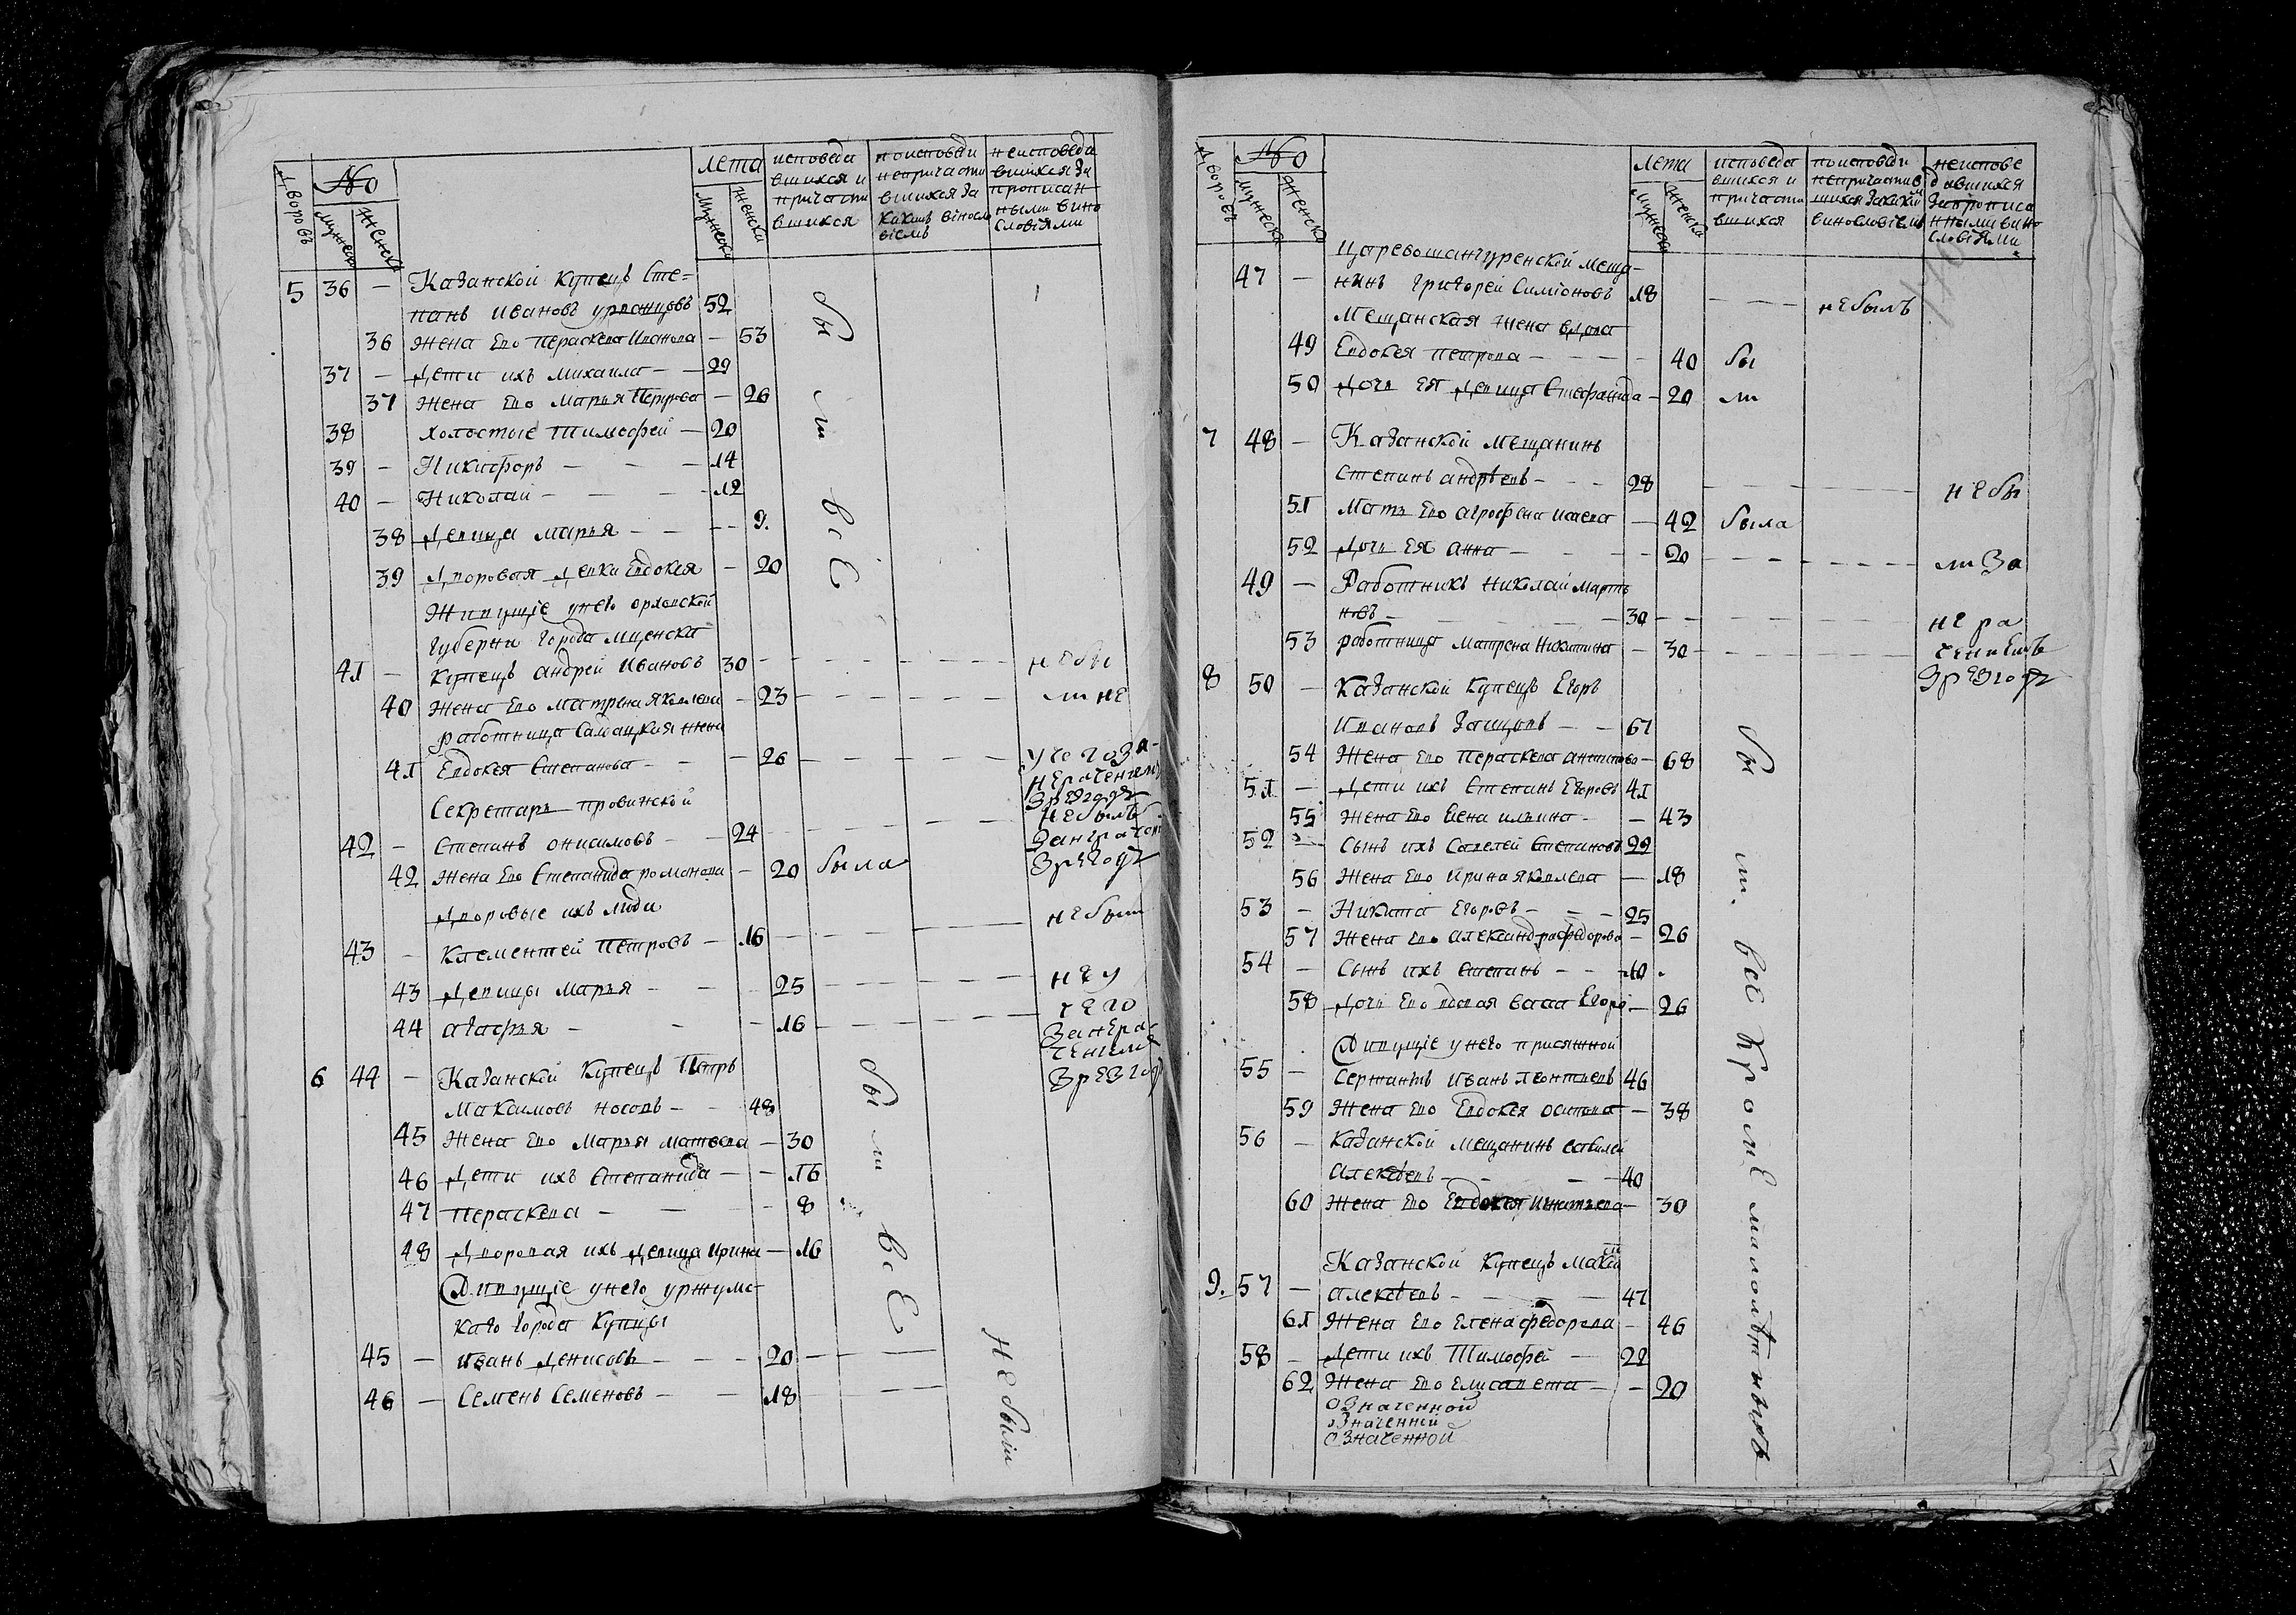 Дворовъ
No
Мужеска
Женска
лета
Мужеска
Женска
исповеда
вшихся и
причасти
вшихся
поисповеди
непричасти
вшихся за
какимъ виносло
віемъ
неисповеда
вшихся за
прописан
ными вино
словіями
5 36 — Казанской Купецъ Сте-
панъ Ивановъ 52
36 Жена Ево Пераскева Иванова — 53
37 — Дети ихъ Михаила — 29
37 Жена Ево Марья Петрова — 26
38 холостые Тимофей — 20
39 — Никифоръ — — — 14
40 — Николай — — — 12
38 Девица Марья — — — 9.
39 Дворовая девка Евдокея — 20
бы
ли
всЕ
Живущіе унего орловской
Губерни города Мценска
41 — Купецъ андрей Ивановъ 30 — — — небы
40 Жена Ево Матрена Яковлева — 23 — — — ли нЕ
работница Салдацкая жена
41 Евдокея Степанова — — — 26 — — —
Секретарь провинской
42 — Степанъ онисимовъ — — 24 — — — небылъ
42 Жена Ево Степанида романова — 20 была
Дворовые ихъ люди
43 — Климентей Петровъ — 16 — — — небыли
43 Девицы Марья — — 25 — — —
44 агафья — — — 16 — — —
6 44 — Казанской Купецъ Петръ
Максимовъ носовъ — — 48
45 Жена Ево Марья Матвеева — 30
46 Дети ихъ Степанида — — 16
47 Пераскева — — — 8
48 Дворовая ихъ девица Ирина — 16
бы
ли
всЕ
Живущіе унего уржумс-
каго города Купцы
45 — Иванъ Денисовъ — — — 20 — — —
46 — Семенъ Семеновъ — — 18 — — —
небыли
Дворовъ
No
Мужеска
Женска
лета
Мужеска
Женска
исповеда
вшихся и
причасти
вшихся
поисповеди
непричастив
шихся закаким
винословіемъ
неиспове
давшихся
запрописа
нными вино
словіями
Царевошангуренской меща-
47 — нинъ Григорей Симіоновъ 18 — — — небылъ
Мещанская жена вдова
49 Евдокея петрова — — — — 40 бы
50 Дочь Ея девица Стефанида — 20 ли
7 48 — Казанской мещанинъ
Степанъ андрѣевъ — — — 28 — — — небы
51 Мать Ево агрофена — 42 была
52 Дочь Ея анна — — — — 20 — — — ли За
49 — Работникъ Николай марты
новъ — — — 30 — — — не ра
53 работница Матрена Никитина — 30 — — — чениемъ
8 50 — Казанской Купецъ Егоръ
Ивановъ — — 67
54 Жена Ево Пераскева антипова — 68
51 — Дети ихъ Степанъ Егоровъ 41
55 Жена Ево Елена ильина — — 43
52 — Сынъ ихъ Савелей Степановъ 22
56 Жена Ево Ирина Яковлева — 18
53 — Никита Егоровъ — — — 25
57 Жена Ево александра федорова — 26
54 — Сынъ ихъ степанъ — — 10
58 Дочь Ево вдовая — 26
Живущіе унего присяжной
55 — Сержантъ Иванъ леонтиевъ 46
59 Жена Ево Евдокея осипова — 38
56 — Казанской мещанинъ
Алексѣевъ — — — 40
60 Жена Ево Евдокея Игнатьева — 30
Казанской Купецъ Максим
9. 57 — алексѣевъ — — — 47
61 Жена Ево Елена федорова — 46
58 — Дети ихъ Тимофей — 22
62 Жена Ево Елисавета — — 20
означенной
означенной
означенной
бы
ли
всЕ
КромЕ
малолѣтныхъ